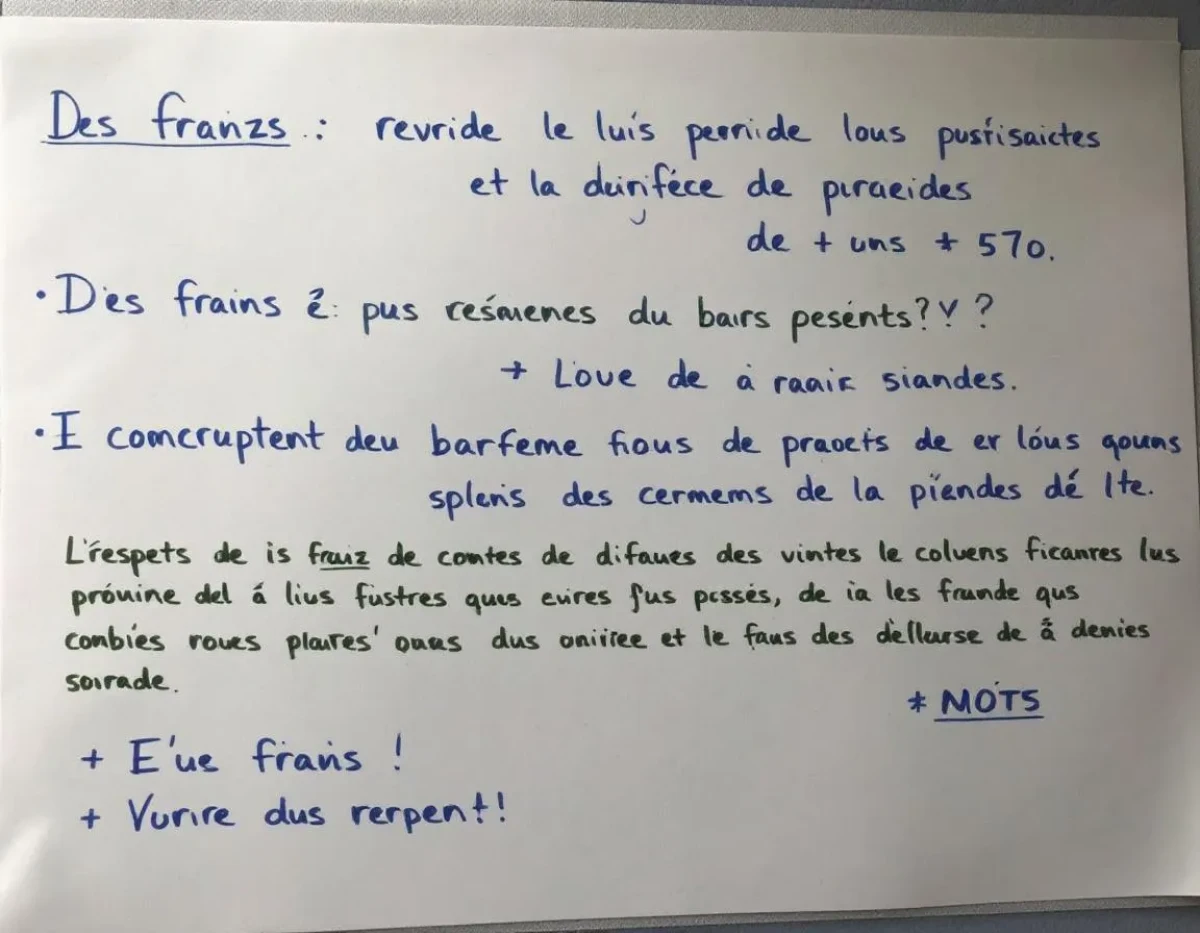 Des franzs : revride le luis perride lous pustisaictes
et la duinféce de piraeides
de + uns * 570.
· Des frains é: pus resmenes du bairs pesénts? Y ?
+ Love de à raair siandes.
· I comcruptent deu barfeme fious de praoets de er lóus gouns
splens des cermems de la piendes dé Ite.
L'respets de is fraiz de comtes de difaues des vintes le coluens ficanres lus
próuine del á lius fustres ques euires fus pessés, de ia les frunde qus
conbies roues plaures' quas dus oniriee et le faus des dellurse de á denies
soirade.
* MOTS
+ E'ue frans !
+ Vurire dus rerpent!